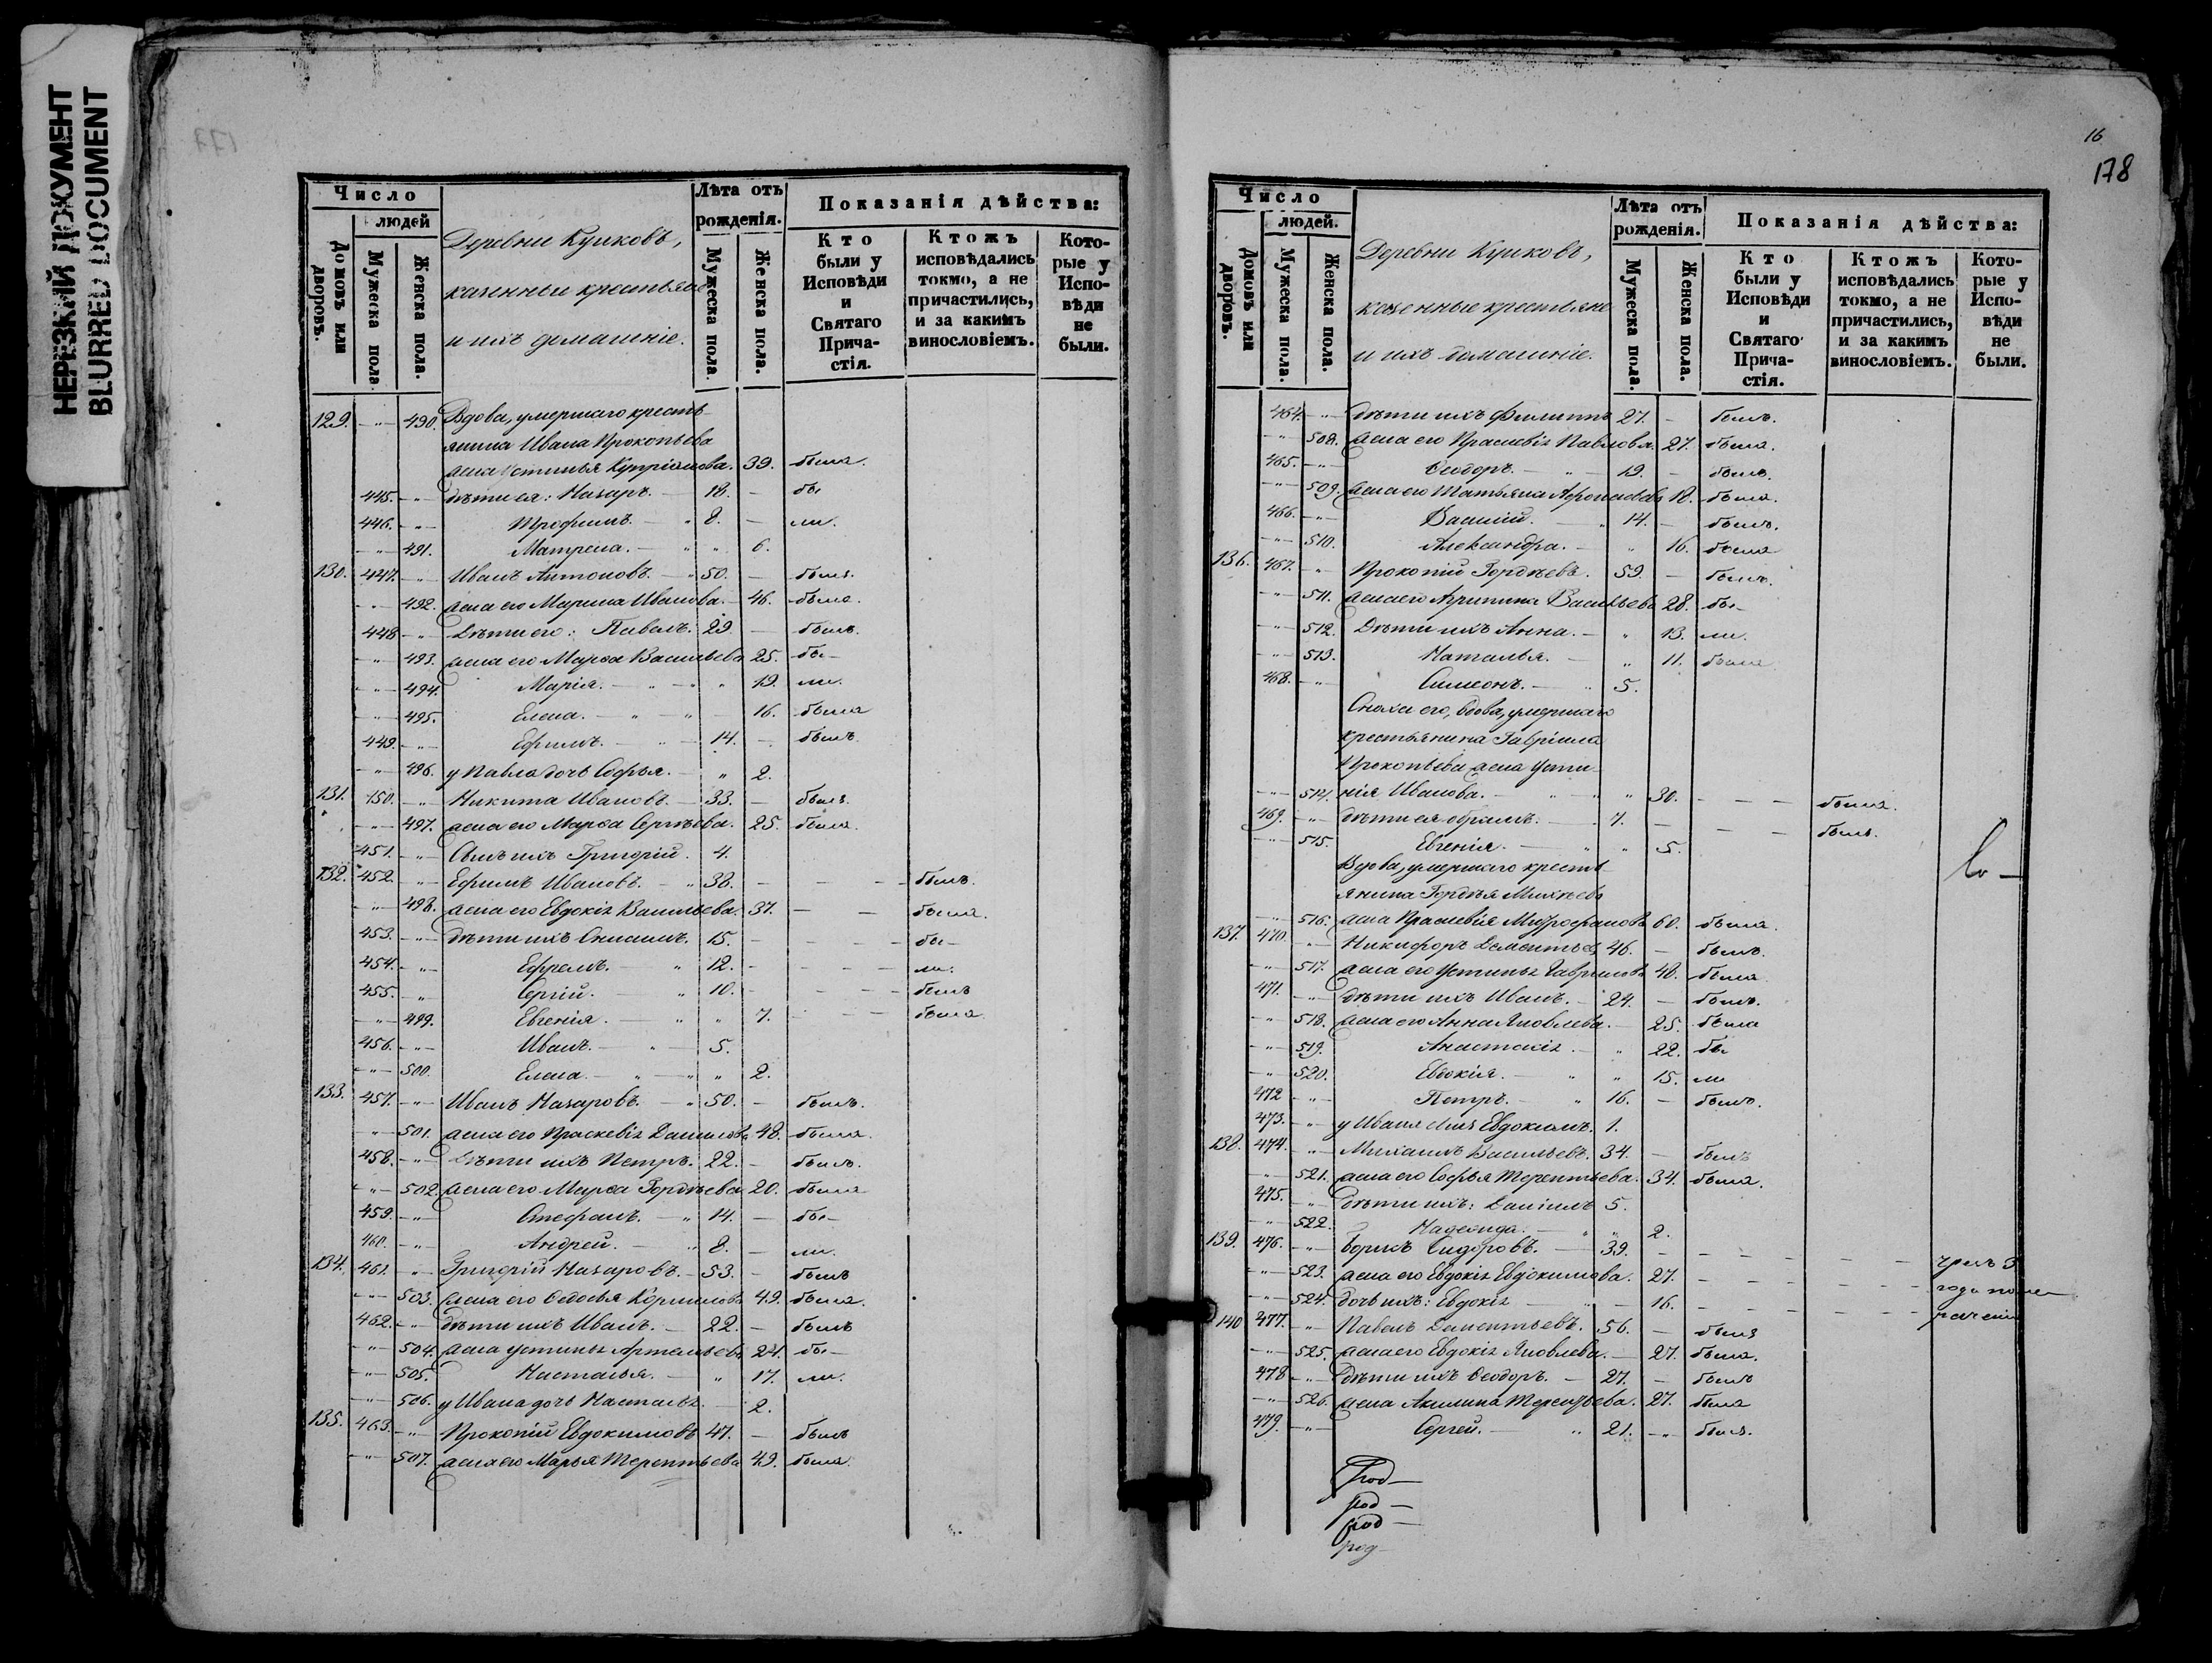 НЕРЕЗКИЙ ДОКУМЕНТ
BLURRED DOCUMENT
177
Число
людей
Домовъ или дворовъ.
Мужеска пола.
Женска пола.
Деревни Куиковъ,
казенные крестьяне
и ихъ домашніе.
Лѣта отъ рожденія.
Мужеска пола.
Женска пола.
Показанія дѣйства:
Кто были у Исповѣди и Святаго Прича-стія.
Ктожъ исповѣдались токмо, а не причастились, и за какимъ винословіемъ.
Кото-рые у Испо-вѣди не были.
129. -"- 490. Вдова, умершаго кресть-
янина Ивана Прокопьева
жена Устинья Купріянова. 39. была.
445. -"- дѣти ея: Назаръ. 18. - бы
446. -"- Трофимъ. - " 8. - ли.
-"- 491. Матрена. - " " 6.
130. 447. -"- Иванъ Антоновъ. - " 50. - былъ.
-"- 492. жена его Марина Иванова. - 46. была.
448. -"- Дѣти его: Павелъ. 29. - былъ.
-"- 493. жена его Марѳа Васильева 25. бы-
-"- 494. Марія. - " - " 19. ли.
-"- 495. Елена. - " - " - 16. была
449. -"- Ефимъ. - " - 14. - былъ
-"- 496. у Павла дочь Софья. - " 2.
131. 450. -"- Никита Ивановъ. - 33. - былъ.
-"- 497. жена его Марѳа Сергѣева. 25. была.
451. -"- Сынъ ихъ Григорій. 4.
132. 452. -"- Ефимъ Ивановъ. - " 38. - - - - былъ.
-"- 498. жена его Евдокія Васильева. 37. - - была.
453. -"- дѣти ихъ Онисимъ. 15. - - - бы-
454. -"- Ефремъ. - " 12. - - - - ли.
455. -"- Сергій. - " 10. - - - - былъ
-"- 499. Евгенія. - " " 7. - - - была
456. -"- Иванъ. - " - 5.
-"- 500. Елена. - " - " " 2.
133. 457. -"- Иванъ Назаровъ. - " 50. - былъ.
-"- 501. жена его Праскевія Данилова 48. была.
458. -"- Дѣти ихъ Петръ. 22. - былъ.
-"- 502. жена его Марѳа Гордѣева 20. была
459. -"- Стефанъ. - " 14. - бы-
460. -"- Андрей. - " 8. - ли.
134. 461. -"- Григорій Назаровъ. - 53. - былъ
-"- 503. жена его Ѳедосья Корнилова 49. была.
462. -"- дѣти ихъ Иванъ. - 22. - былъ
-"- 504. жена Устинья Артемьева 24. бы-
-"- 505. Наталья. - " 17. ли.
-"- 506. у Ивана дочь Наталья. - 2.
135. 463. -"- Прокопій Евдокимовъ 47. - былъ
-"- 507. жена его Марья Терентьева 49. была.
16
178
Число
людей.
Домовъ или дворовъ.
Мужеска пола.
Женска пола.
Деревни Куиковъ,
казенные крестьяне
и ихъ домашніе.
Лѣта отъ рожденія.
Мужеска пола.
Женска пола.
Показанія дѣйства:
Кто были у Исповѣди и Святаго Прича-стія.
Ктожъ исповѣдались токмо, а не причастились, и за какимъ винословіемъ.
Кото-рые у Испо-вѣди не были.
464. -"- дѣти ихъ Филиппъ 27. - былъ.
-"- 508. жена его Праскевія Павлова. 27. была.
465. -"- Ѳеодоръ. - " - 19. - былъ.
-"- 509. жена его Татьяна 18. была.
466. -"- Василій. - " 14. - былъ.
-"- 510. Александра. - " 16. была
136. 467. -"- Прокопій Гордѣевъ. 59. - былъ.
-"- 511. жена его Агрипина Васильева 28. бы-
-"- 512. Дѣти ихъ Анна. - " 13. ли.
-"- 513. Наталья. - " 11. была
468. -"- Симеонъ. - " 5.
Сноха его, вдова, умершаго
крестьянина Гавріила
Прокопьева жена Усти-
-"- 514. нія Иванова. - " - " " 30. - - - была.
469. -"- дѣти ея 7. - - - былъ.
-"- 515. Евгенія. - " " 5.
Вдова, умершаго кресть-
янина Гордѣя Михѣева
-"- 516. жена Праскевія Митрофанова 60. была.
137. 470. -"- Никифоръ Дементьев 46. - былъ.
-"- 517. жена его Устинья Гаврилова 48. была
471. -"- дѣти ихъ Иванъ. - 24. - былъ.
-"- 518. жена его Анна Яковлева. - 25. была
-"- 519. Анастасія. - " 22. бы
-"- 520. Евдокія. - " " 15. ли
472. -"- Петръ. - " 16. - былъ.
473. -"- у Ивана сынъ Евдокимъ. 1.
138. 474. -"- Михаилъ Васильевъ. 34. - былъ
-"- 521. жена его Софья Терентьева. 34. была.
475. -"- дѣти ихъ: Даніилъ 5.
-"- 522. Надежда. - " " 2.
139. 476. -"- Борисъ Сидоровъ. - 39. - - - - - - чрезъ 3
-"- 523. жена его Евдокія Евдокимова. 27. - - - - - - года
-"- 524. дочь ихъ: Евдокія - " - 16. - - - - - -
140 477. -"- Павелъ Дементьевъ. 56. - былъ
-"- 525. жена его Евдокія Яковлева. - 27. была.
478. -"- дѣти ихъ Ѳеодоръ. - 27. - былъ
-"- 526. жена Акилина Терентьева. 27. была
479. -"- Сергей. - " 21. -"- былъ.
род-
род-
род-
род-